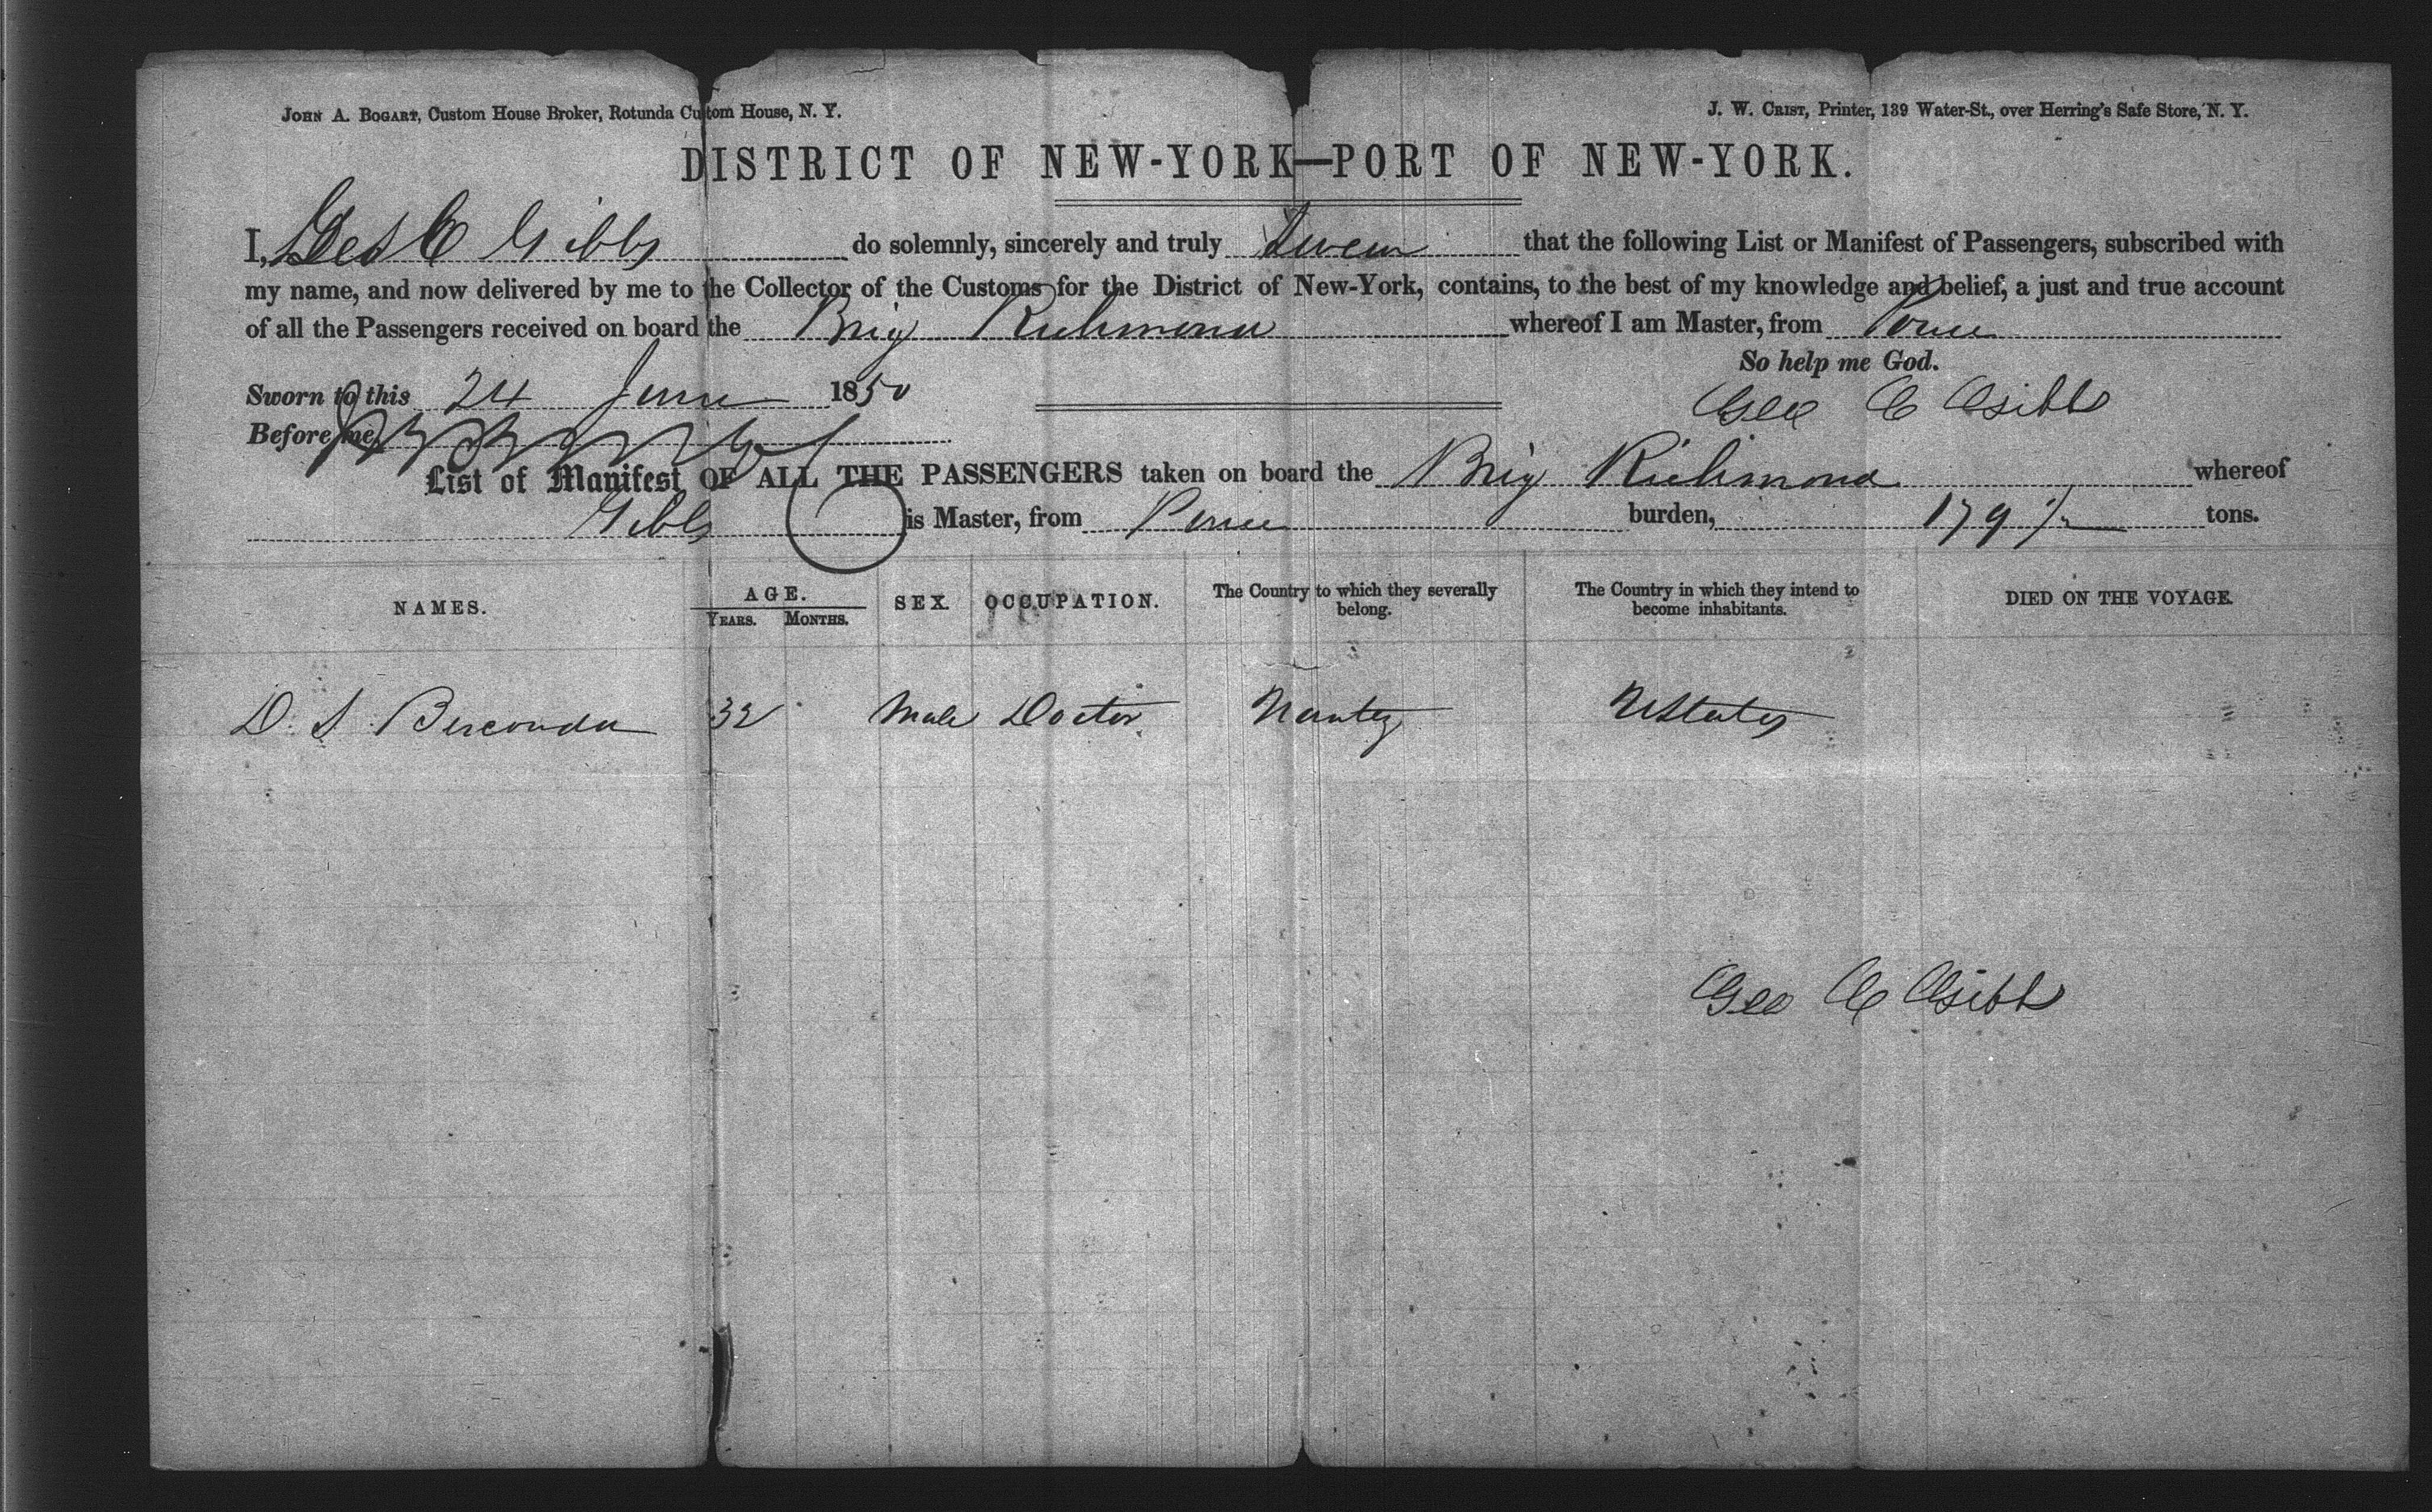 JOHN A. BOGART, Custom House Broker, Rotunda Custom House, N. Y.
J. W. CRIST, Printer, 139 Water-St., over Herring's Safe Store, N. Y.
DISTRICT OF NEW-YORK—PORT OF NEW-YORK.
I, Geo C Gibbs do solemnly, sincerely and truly Swear that the following List or Manifest of Passengers, subscribed with
my name, and now delivered by me to the Collector of the Customs for the District of New-York, contains, to the best of my knowledge and belief, a just and true account
of all the Passengers received on board the Brig Richmond whereof I am Master, from Ponce
So help me God.
Sworn to this 24 June 1850
Geo C Gibbs
Before me,
List of Manifest OF ALL THE PASSENGERS taken on board the Brig Richmond whereof
Gibbs is Master, from Ponce burden, 179 1/2 tons.
NAMES. AGE. SEX. OCCUPATION. The Country to which they severally belong. The Country in which they intend to become inhabitants. DIED ON THE VOYAGE.
YEARS. MONTHS.
D. S. 32 Male Doctor Nantez UStates
Geo C Gibbs